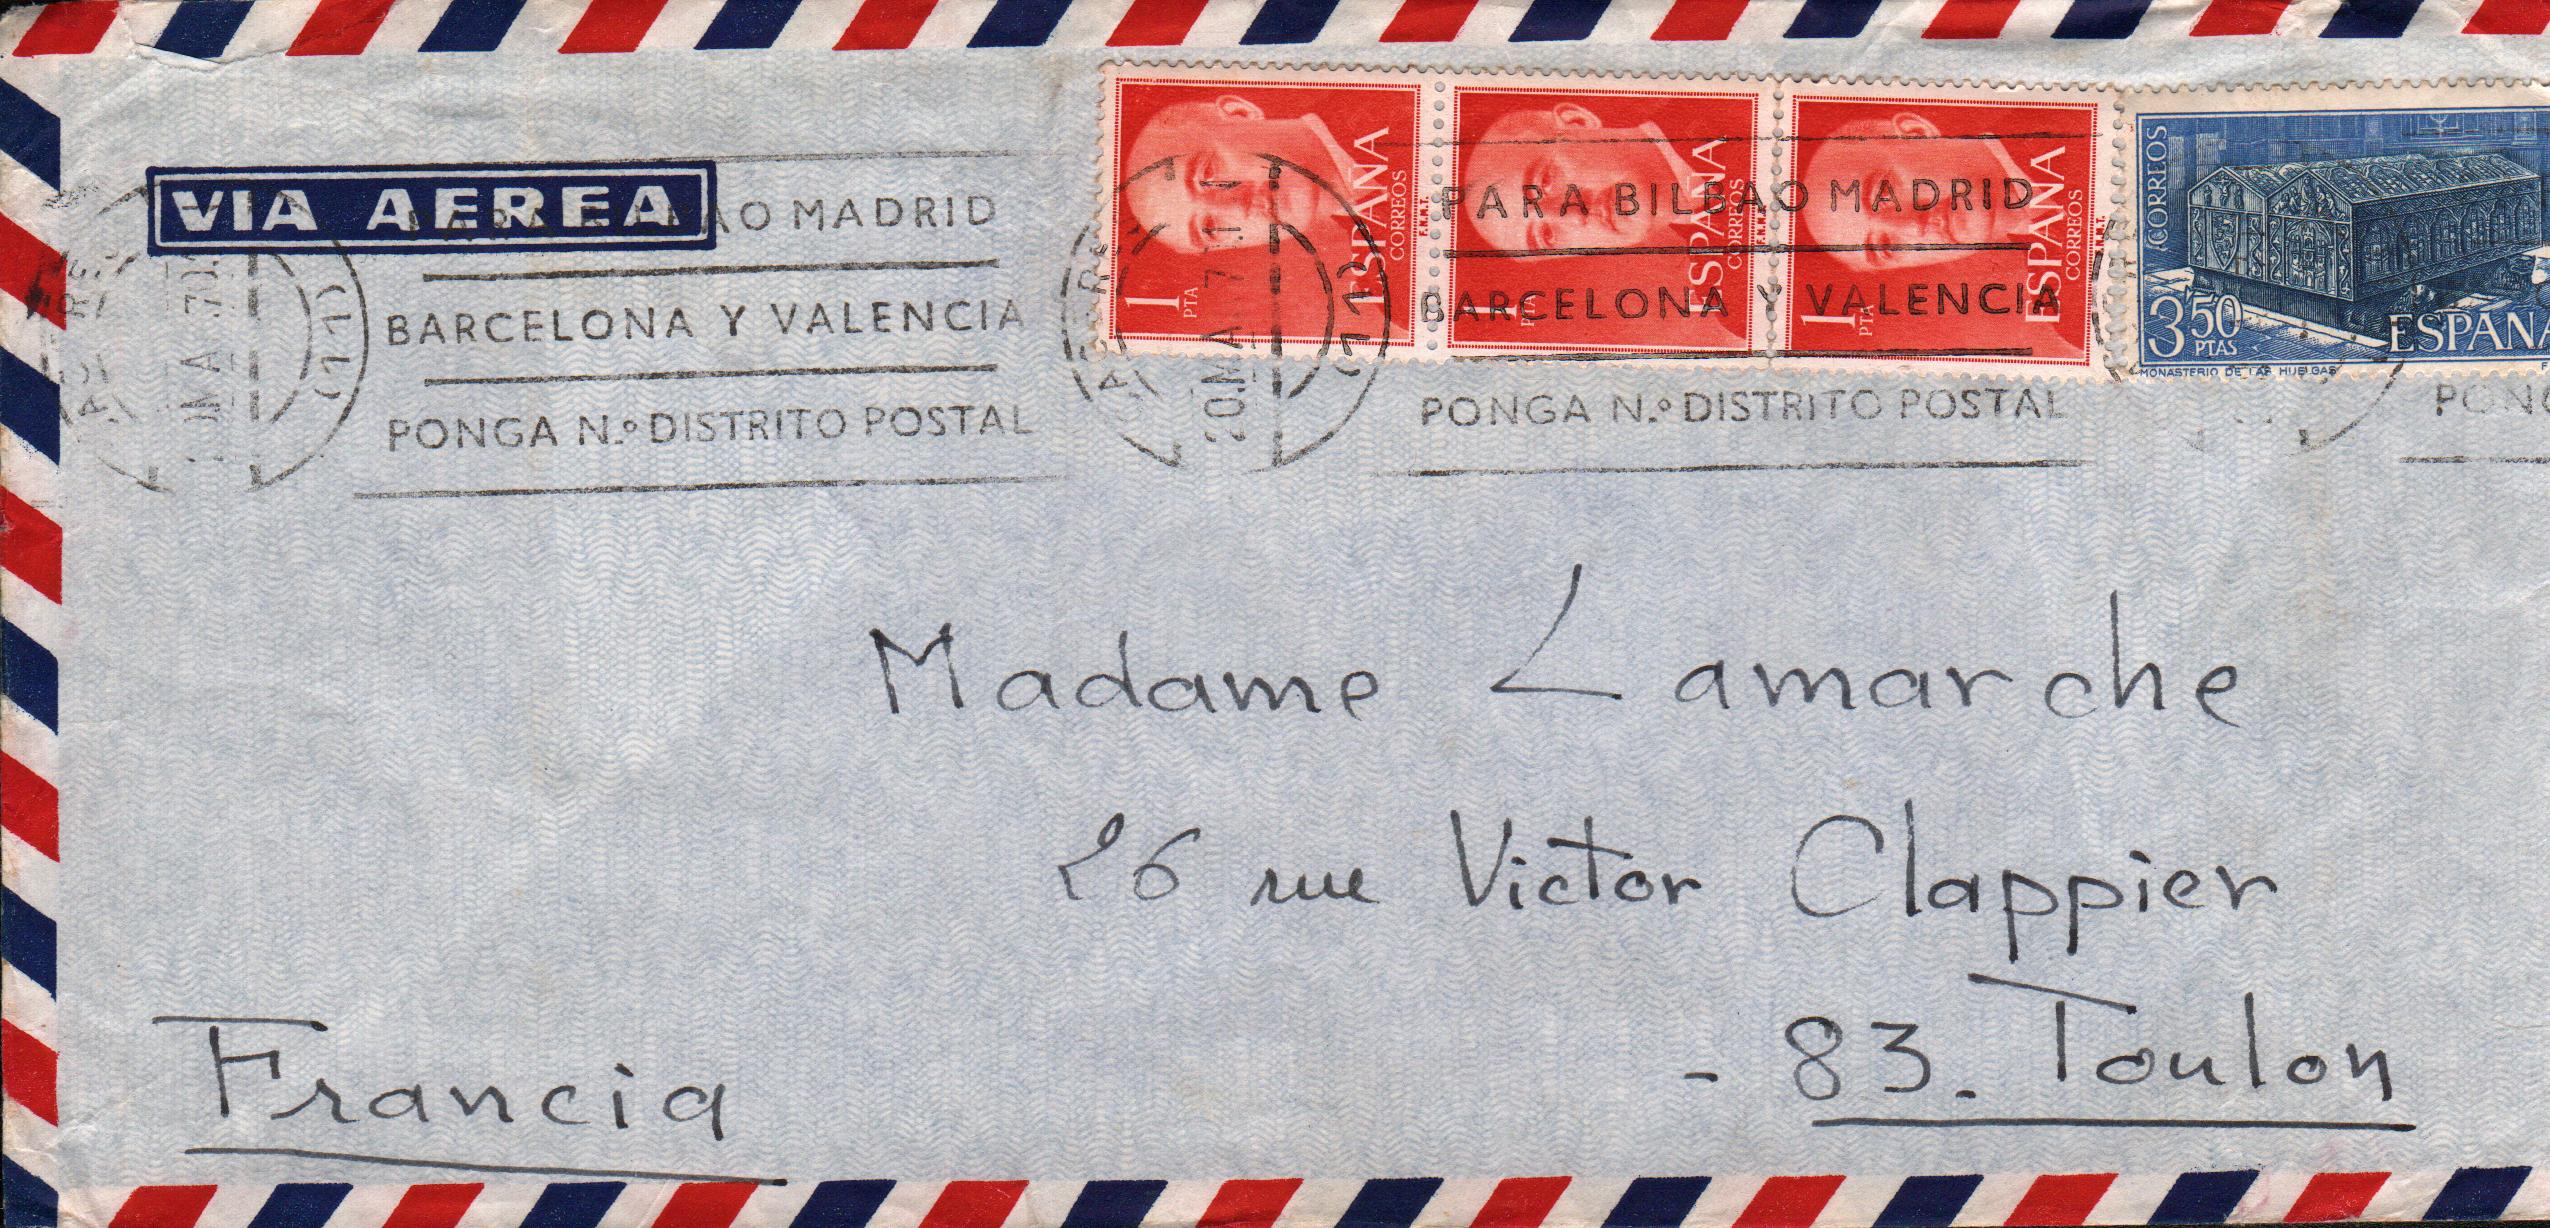 VIA AEREA
AO MADRID
BARCELONA Y VALENCIA
PONGA N.º DISTRITO POSTAL
(11)
1 PTA
ESPAÑA
CORREOS
F.N.M.T.
1 PTA
ESPAÑA
CORREOS
1 PTA
ESPAÑA
CORREOS
20.MA 7
(11)
PARA BILBAO MADRID
BARCELONA Y VALENCIA
PONGA N.º DISTRITO POSTAL
CORREOS
3'50
PTAS
ESPAÑA
MONASTERIO DE LAS HUELGAS
PONG
Madame Lamarche
26 rue Victor Clappier
- 83. Toulon
Francia